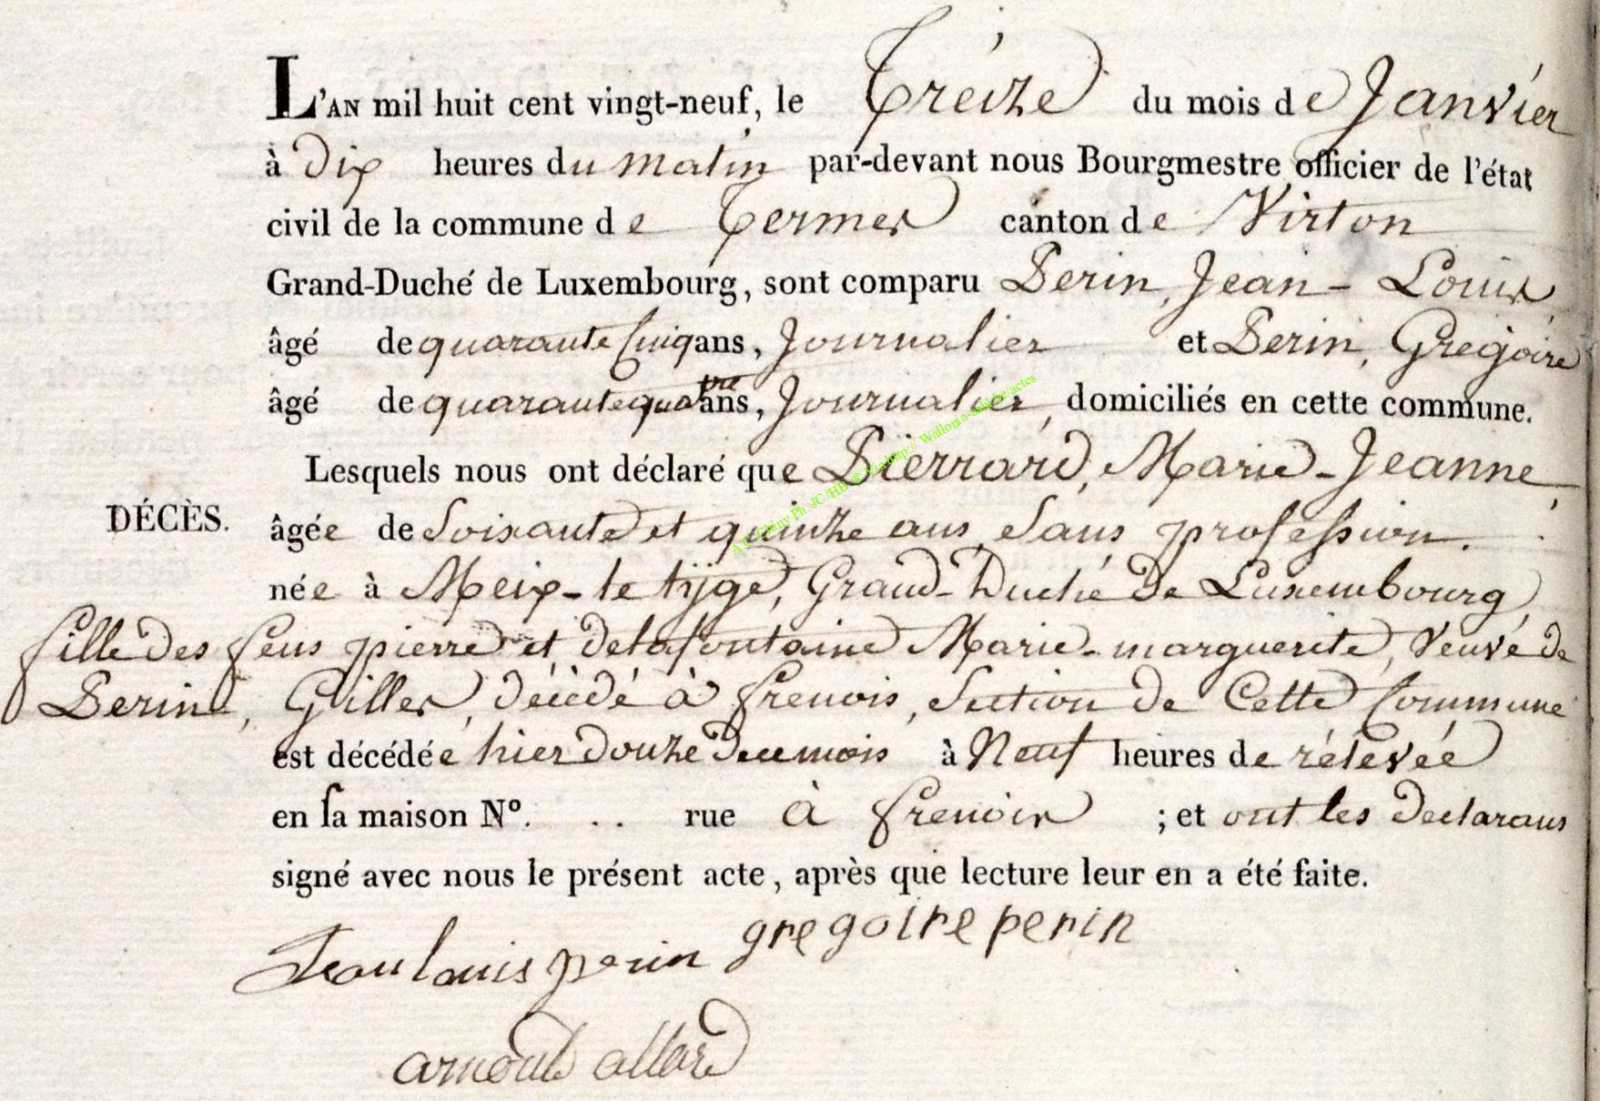 L'AN mil huit cent vingt-neuf, le Tréize du mois de Janvier
à Dix heures du matin par-devant nous Bourgmestre officier de l'état
civil de la commune de Termes canton de Virton
Grand-Duché de Luxembourg, sont comparu Perin, Jean-Louis
âgé de quarante Cinq ans, Journalier et Perin, Gregoire
âgé de quarante quatre ans, Journalier, domiciliés en cette commune.
Lesquels nous ont déclaré que Pierrard, Marie-Jeanne,
DÉCÈS. âgée de Soixante et quinze ans, Sans profession.
née à Meix-le tijge, Grand-Duché De Luxembourg
fille Des feus pierre et Delafontaine Marie-marguerite, Veuve de
Perin, Gilles, décédé à frenois, Section de Cette Commune
est décédée hier Douze Du mois à Neuf heures de rélevée
en sa maison N°. .. rue à frenois ; et ont les Declarans
signé avec nous le présent acte, après que lecture leur en a été faite.
Jean louis perin gregoire perin
arnould allard